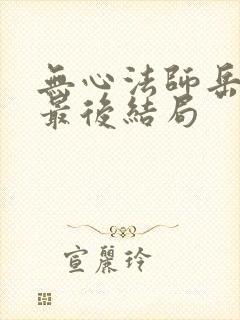 無心法師岳
最後結局
宣麗玲